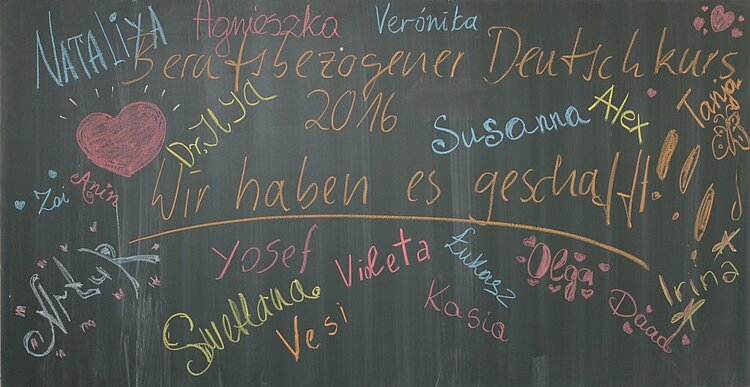 NATALIYA
Agnieszka
Verónika
Berufsbezogener Deutschkurs
2016
Dr. ILYA
Susanna
Alex
Tanja
Wir haben es geschafft!!!
Zoi
Anin
Artur
Yosef
Violeta
Łukasz
Olga
Irina
Swetlana
Vesi
Kasia
Daad